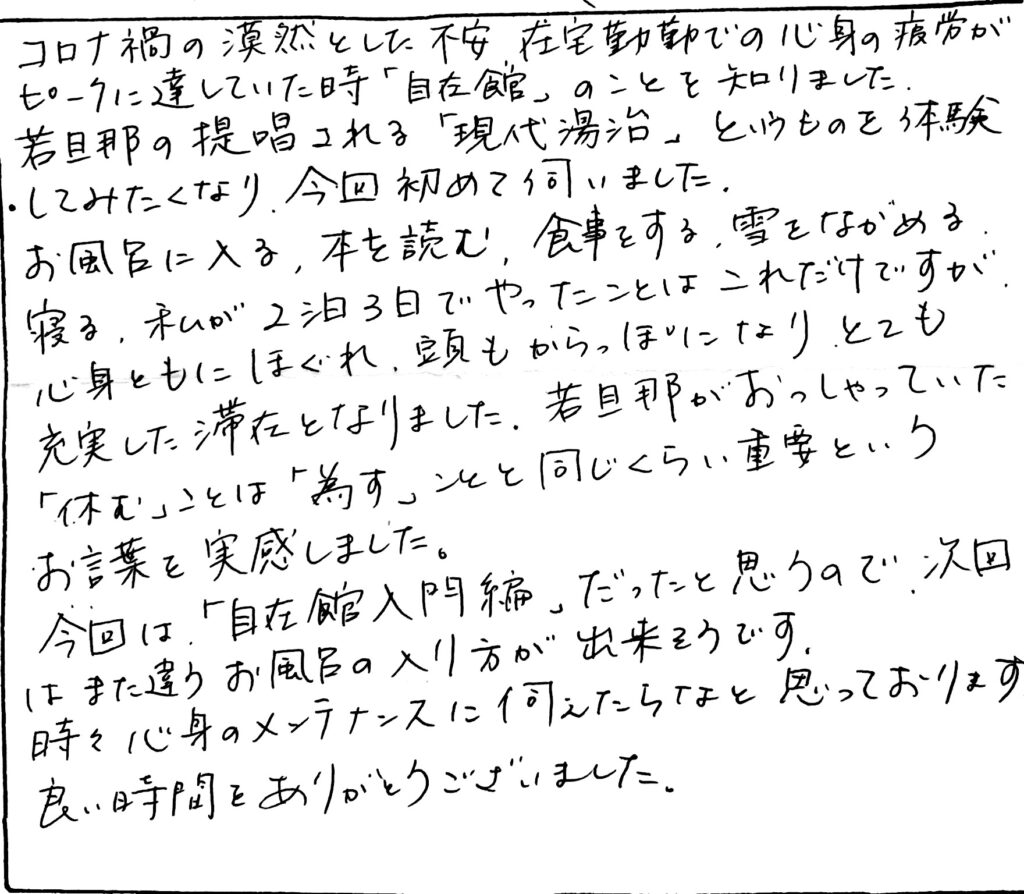 コロナ禍の漠然とした不安、在宅勤勤での心身の疲労が
ピークに達していた時「自在館」のことを知りました.
若旦那の提唱される「現代湯治」というものを体験
してみたくなり、今回初めて伺いました.
お風呂に入る、本を読む、食事をする、雪をながめる、
寝る、私が2泊3日でやったことはこれだけですが、
心身ともにほぐれ、頭もからっぽになり、とても
充実した滞在となりました. 若旦那がおっしゃっていた
「休む」ことは「為す」ことと同じくらい重要という
お言葉を実感しました。
今回は、「自在館入門編」だったと思うので、次回
はまた違うお風呂の入り方が出来そうです.
時々心身のメンテナンスに伺えたらなと思っております
良い時間をありがとうございました。